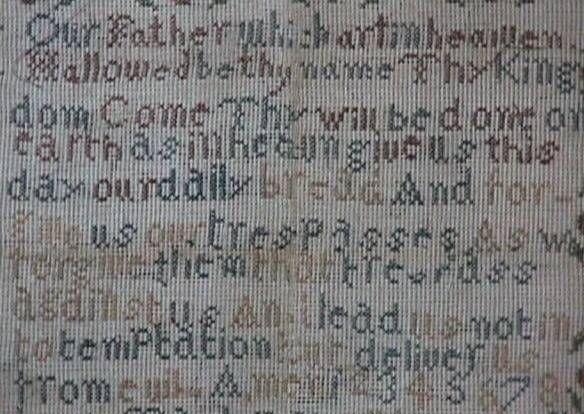 Our Father which art in heaven
Hallowed be thy name Thy King
dom Come Thy will be done on
earth as in heaun giue us this
day our daily bread And for-
giue us our trespasses As we
forgiue them that trespass
against us And lead us not in
to temptation but deliver us
from euil Amen 1 2 3 4 5 6 7 8